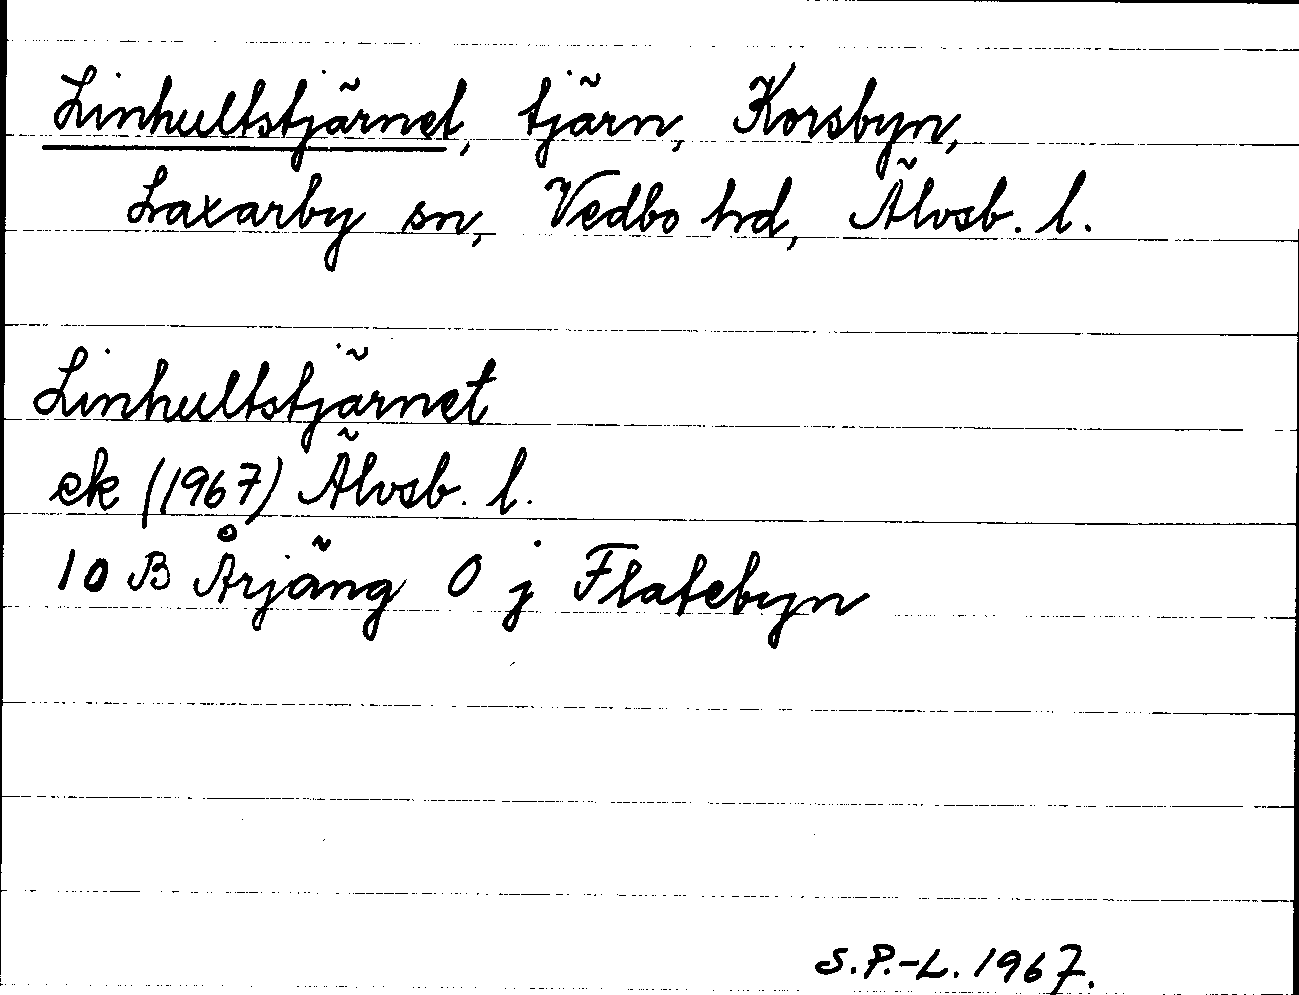 Linhultstjärnet, tjärn, Korsbyn,
Laxarby sn, Vedbo hd, Älvsb. l.
Linhultstjärnet
ek (1967) Älvsb. l.
10 B Årjäng 0 j Flatebyn
S.P.-L. 1967.